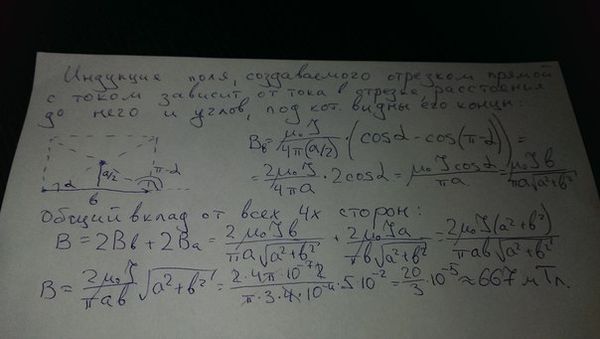 Индукция поля, создаваемого отрезком прямой
с током зависит от тока в отрезке, расстояния
до него и углов, под кот. видны его концы:
B_b = μ₀J/(4π(a/2)) · (cosα - cos(π-α)) =
a/2 π-α α b
= 2μ₀J/(4πa) · 2cosα = μ₀J cosα/(πa) = μ₀Jb/(πa√(a²+b²))
Общий вклад от всех 4х сторон:
B = 2B_b + 2B_a = 2μ₀Jb/(πa√(a²+b²)) + 2μ₀Ja/(πb√(a²+b²)) = 2μ₀J(a²+b²)/(πab√(a²+b²))
B = 2μ₀J/(πab) √(a²+b²) = 2·4π·10⁻⁷·2/(π·3·4·10⁻⁴) · 5·10⁻² = 20/3 · 10⁻⁵ ≈ 667 мТл.